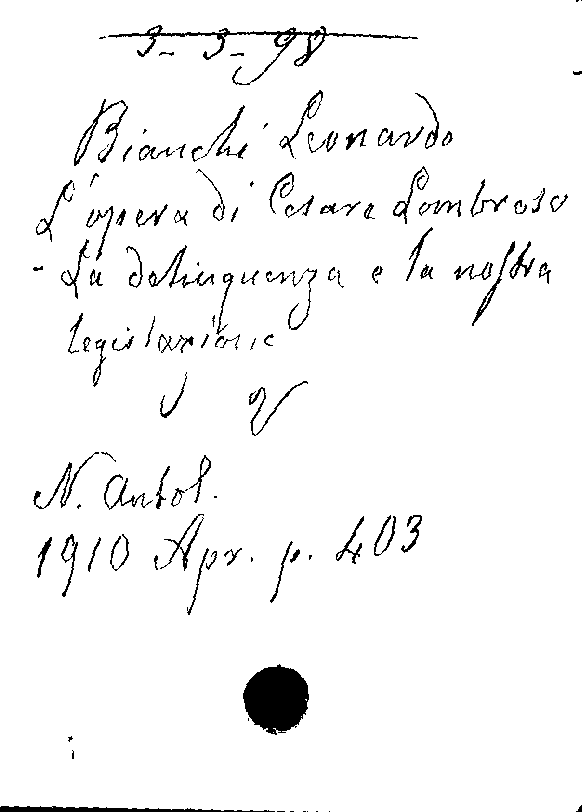 3-3-98
Bianchi Leonardo
L'opera di Cesare Lombroso
- La delinquenza e la nostra
legislazione
N. Antol.
1910 Apr. p. 403